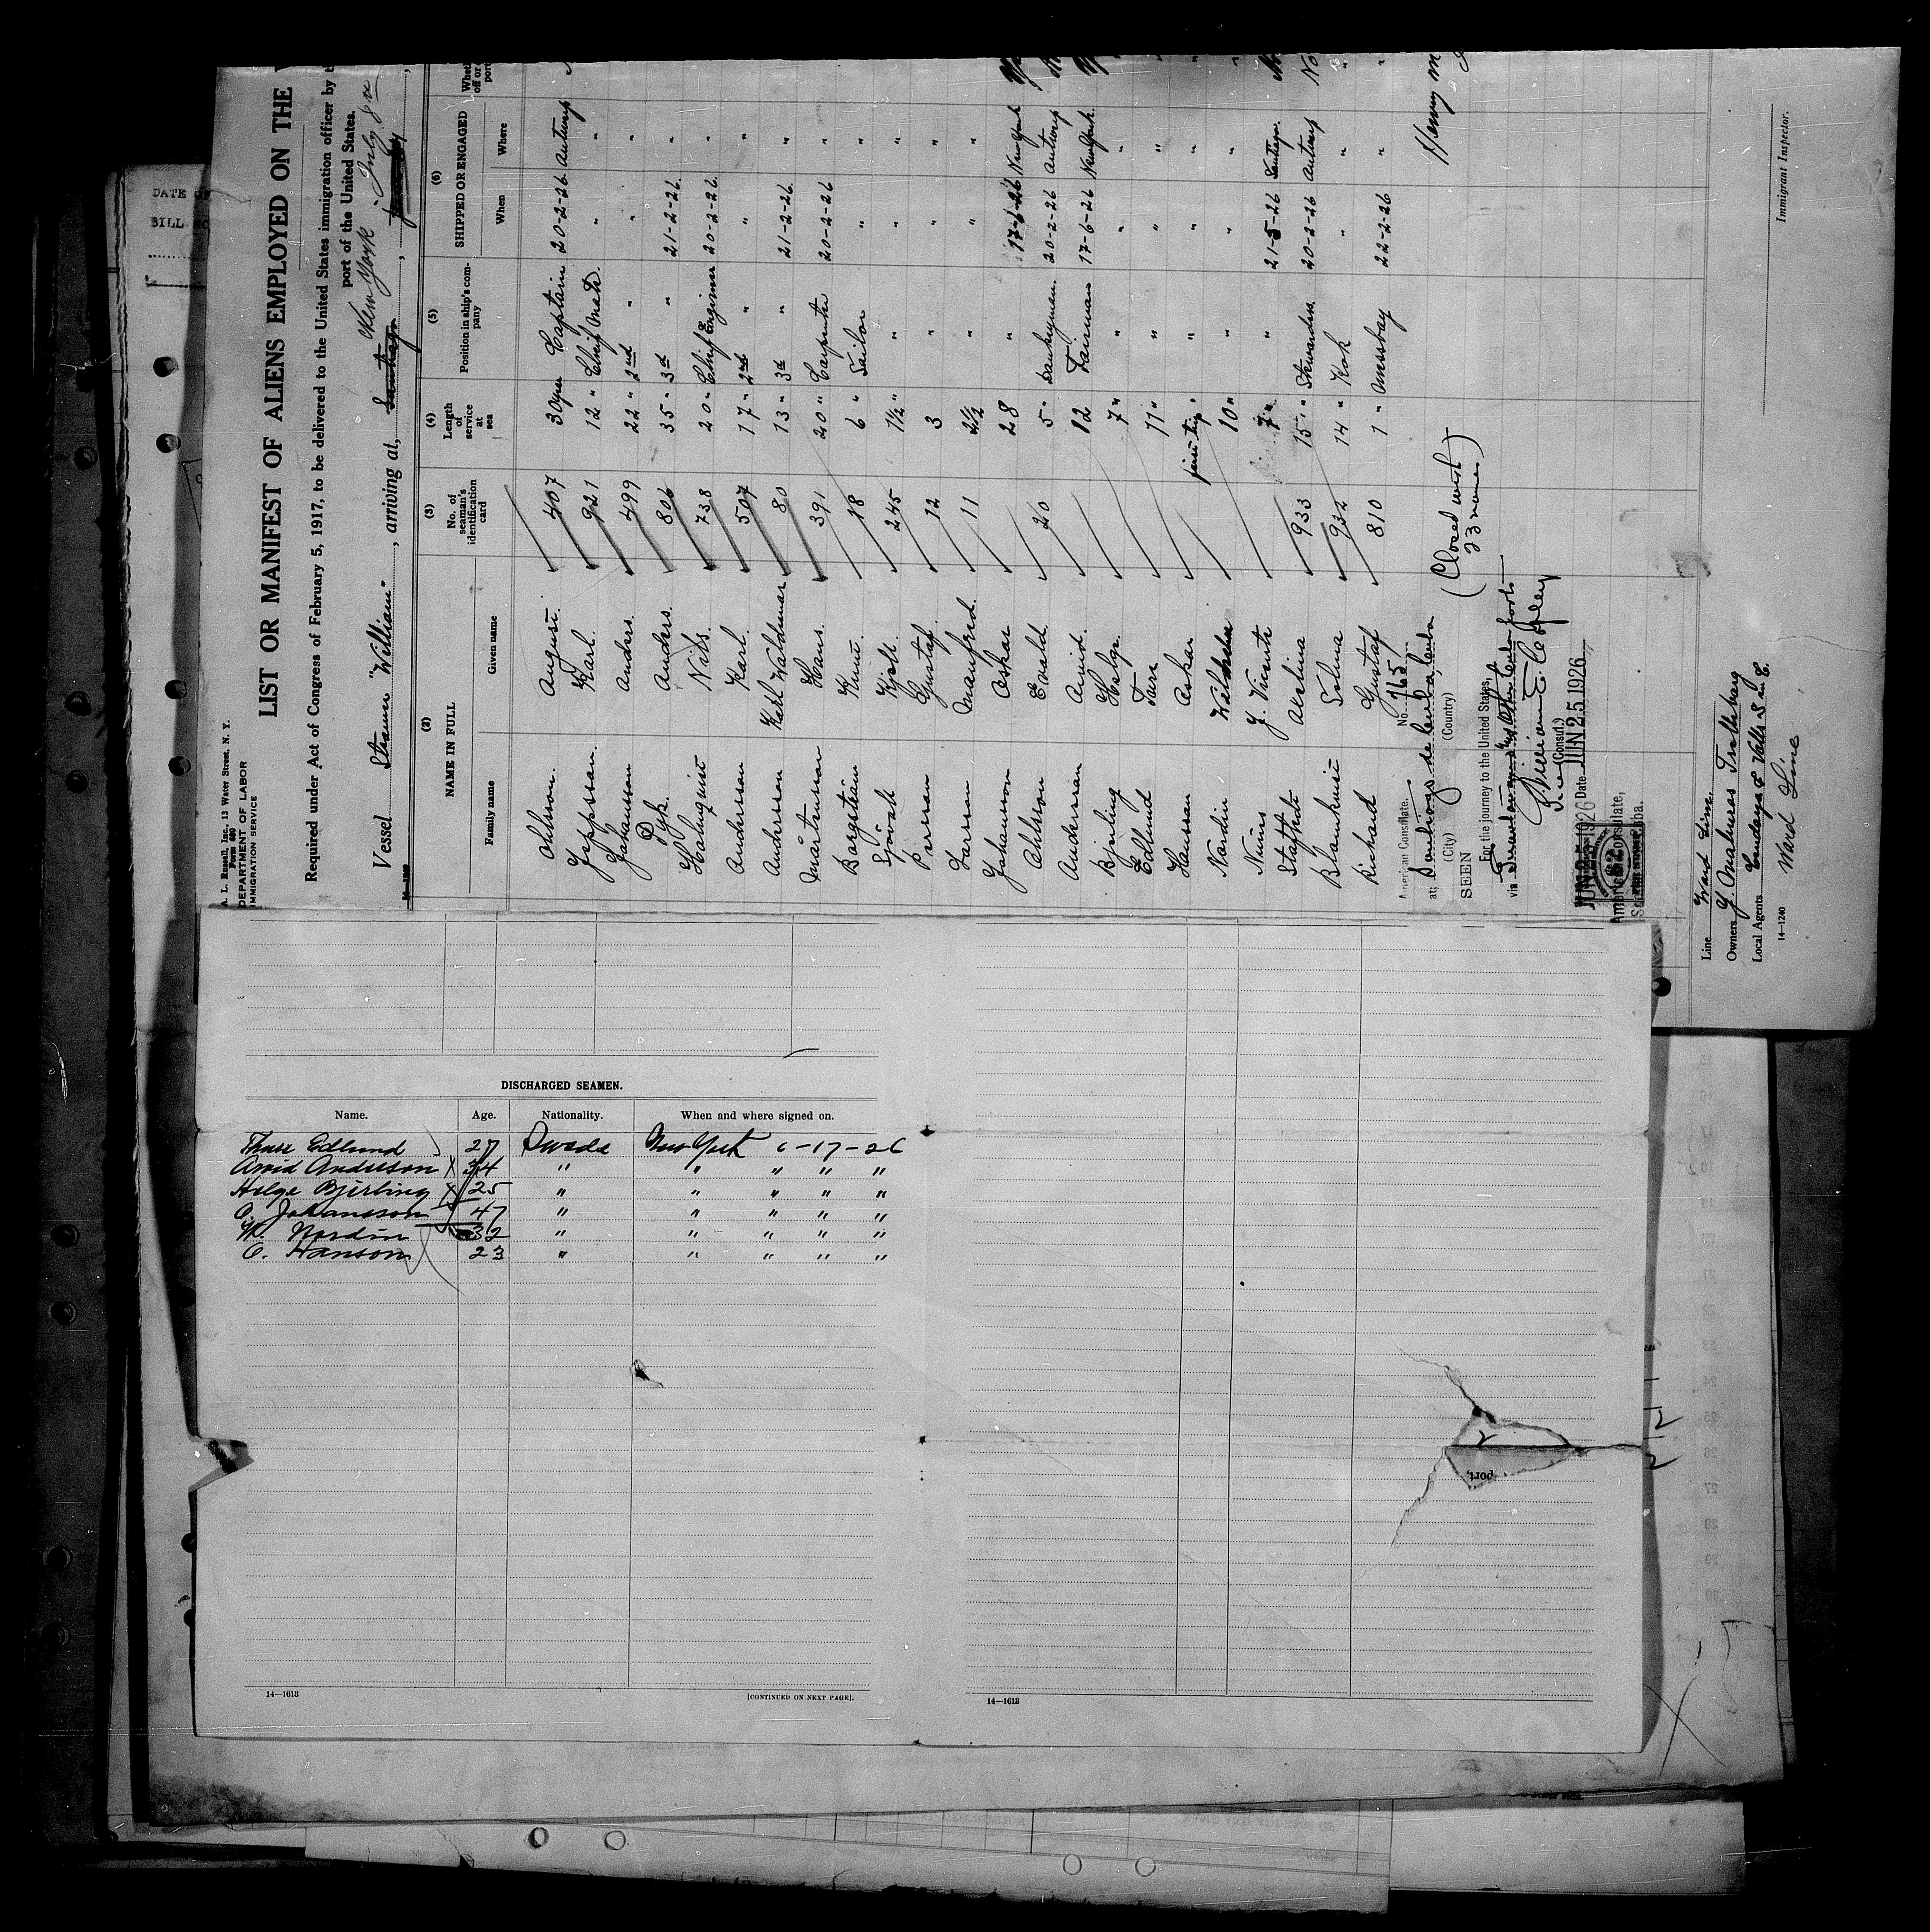 DATE OF
BILL NO
A. L. Russell, Inc., 13 Water Street, N. Y.
Form 680
DEPARTMENT OF LABOR
IMMIGRATION SERVICE
LIST OR MANIFEST OF ALIENS EMPLOYED ON THE
Required under Act of Congress of February 5, 1917, to be delivered to the United States immigration officer by
port of the United States.
New York - July
Vessel Steamer "William" , arriving at, Santiago
(2) (3) (4) (5) (6)
NAME IN FULL No. of seaman's identification card Length of service at sea Position in ship's company SHIPPED OR ENGAGED
Family name Given name When Where
Ohlsson. August. 407 30 years Captain 20-2-26 Antwerp
Jeppsson. Karl. 921 12 " Chief Mate. " "
Johansson Anders. 499 22 " 2nd " " "
Dyk. Anders. 806 35 " 3d " 21-2-26 "
Holmquist Nils. 738 20 " Chief Engineer 20-2-26 "
Andersson Karl. 507 17 " 2nd " " "
Andersson Karl Waldemar 80 13 " 3d " 21-2-26 "
Mårtensson Hans. 391 20 " Carpenter 20-2-26 "
Bergström Knut. 18 6 " Sailor " "
Sjövall Kjell. 245 1½ " " " "
Persson Gustaf. 12 3 " " "
Larsson Manfred. 11 2½ " " "
Johansson Oskar 28 " 17-6-26 New York
Ohlsson Evald 20 5 " Donkeyman. 20-2-26 Antwerp
Andersson Arvid. 12 Fairman 17-6-26 New York.
Bjerling Helge. 7 " " " "
Edlund Ture 17 " " " "
Hansson Oskar first trip " " " "
Nordin Wilhelm 10 " " " "
Nunes J. Vicente 7 " " 21-5-26 Santiago.
Staffhat Adelina 933 15 " Stewardess. 20-2-26 Antwerp No
Blomkvist Selma 932 14 " Kok " " "
Rickard Gustaf 810 1 " Messboy 22-2-26 " "
(Closed with
23 names)
Henry
American Consulate, No. 765
at: Santiago de Cuba, Cuba
(City) (Country)
SEEN
For the journey to the United States,
via
William E. Copley
(Consul.)
JUN 25 1926 Date JUN 25 1926
American Consulate,
Line Ward Line.
Owners
Local Agents
14—1240
Ward Line
Immigrant Inspector.
DISCHARGED SEAMEN.
Name. Age. Nationality. When and where signed on.
Thure Edlund 27 Swede New York 6-17-26
Arvid Andreson X 34 " " " " "
Helge Bjerling X 25 " " " " "
O. Johansson 47 " " " " "
W. Nordin 32 " " " " "
O. Hanson 23 " " " " "
14—1613 [CONTINUED ON NEXT PAGE].
14—1613
port,